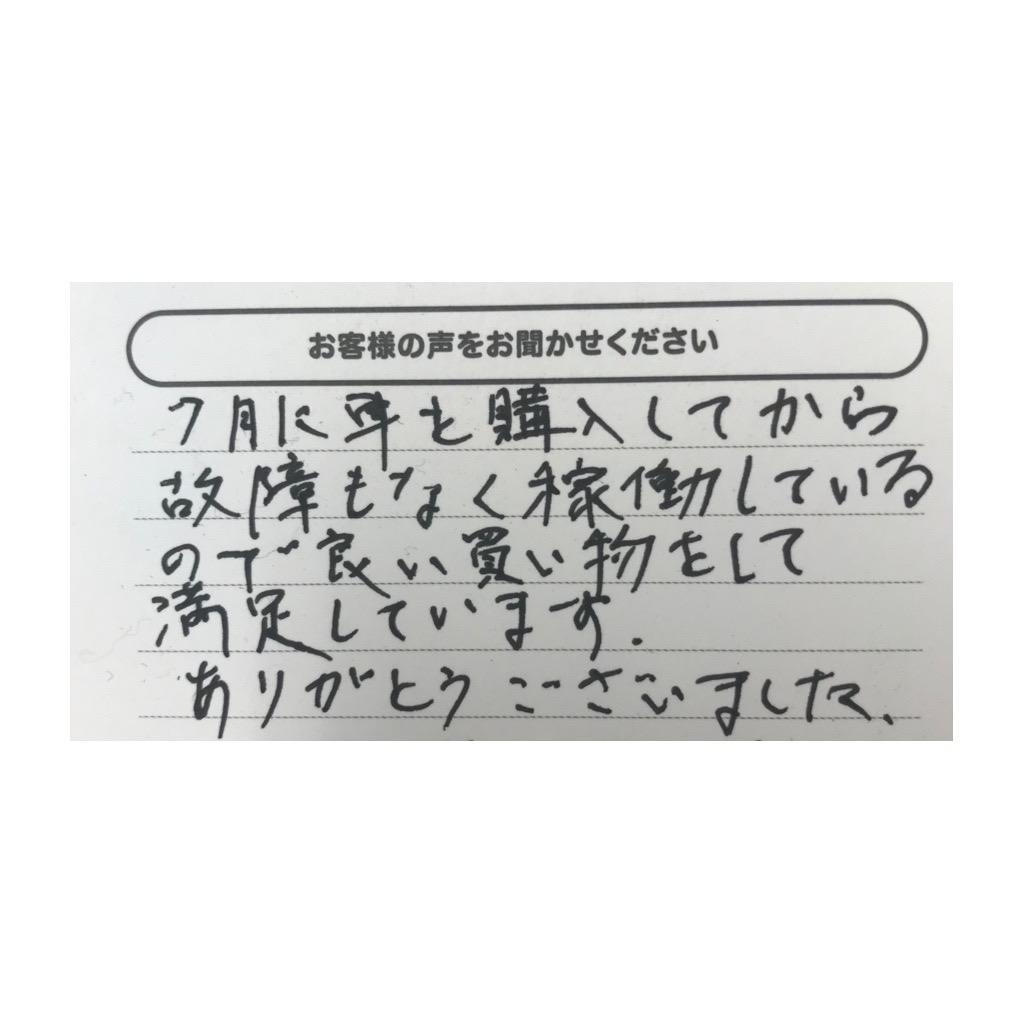 お客様の声をお聞かせください
7月に車を購入してから
故障もなく稼働している
ので良い買い物をして
満足しています.
ありがとうございました、